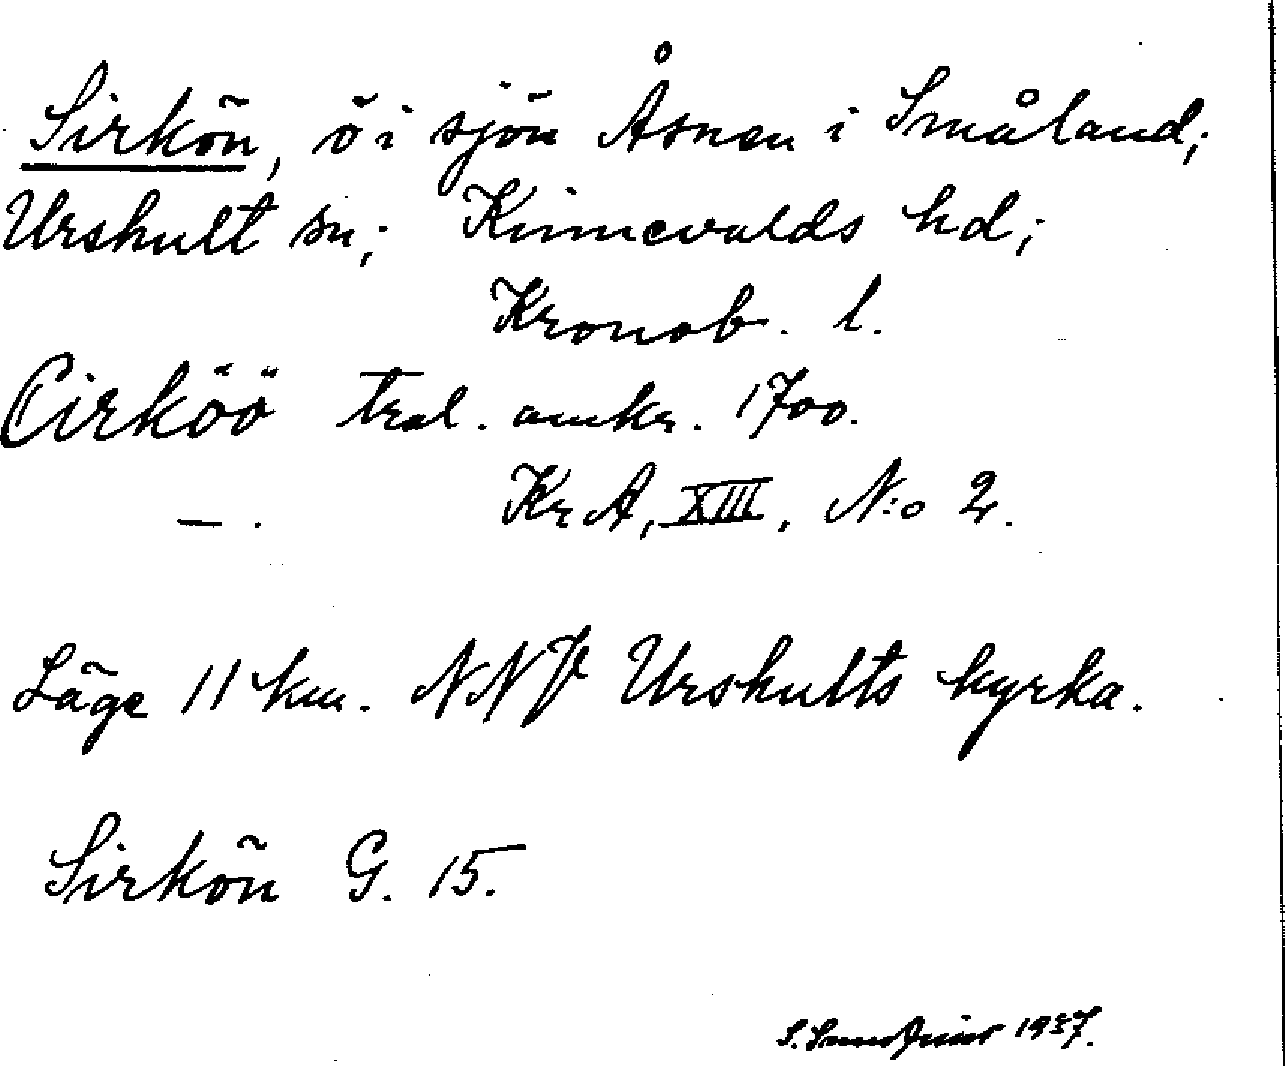 Sirkön, ö i sjön Åsnen i Småland;
Urshult sn; Kinnevalds hd;
Kronob. l.
Cirköö tral. omkr. 1700.
— . KrA, XIII, N:o 2.
Läge 11 km. NNV Urshults kyrka.
Sirkön G. 15.
S. 1937.